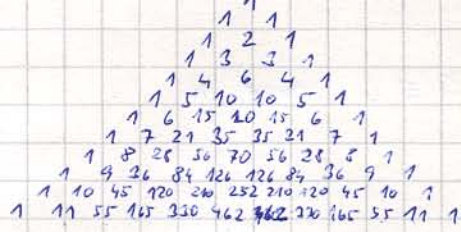 1
1 1
1 2 1
1 3 3 1
1 4 6 4 1
1 5 10 10 5 1
1 6 15 20 15 6 1
1 7 21 35 35 21 7 1
1 8 28 56 70 56 28 8 1
1 9 36 84 126 126 84 36 9 1
1 10 45 120 210 252 210 120 45 10 1
1 11 55 165 330 462 462 330 165 55 11 1